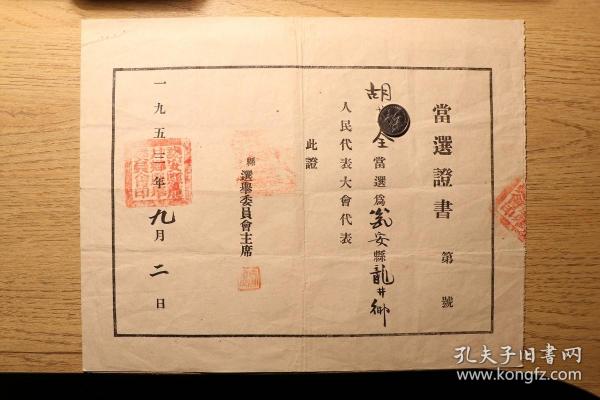 當選證書
第 號
胡 全當選為瓮安縣龍井鄉
人民代表大會代表
此證
縣選舉委員會主席
一九五三年九月二日
孔夫子旧书网
www.kongfz.com